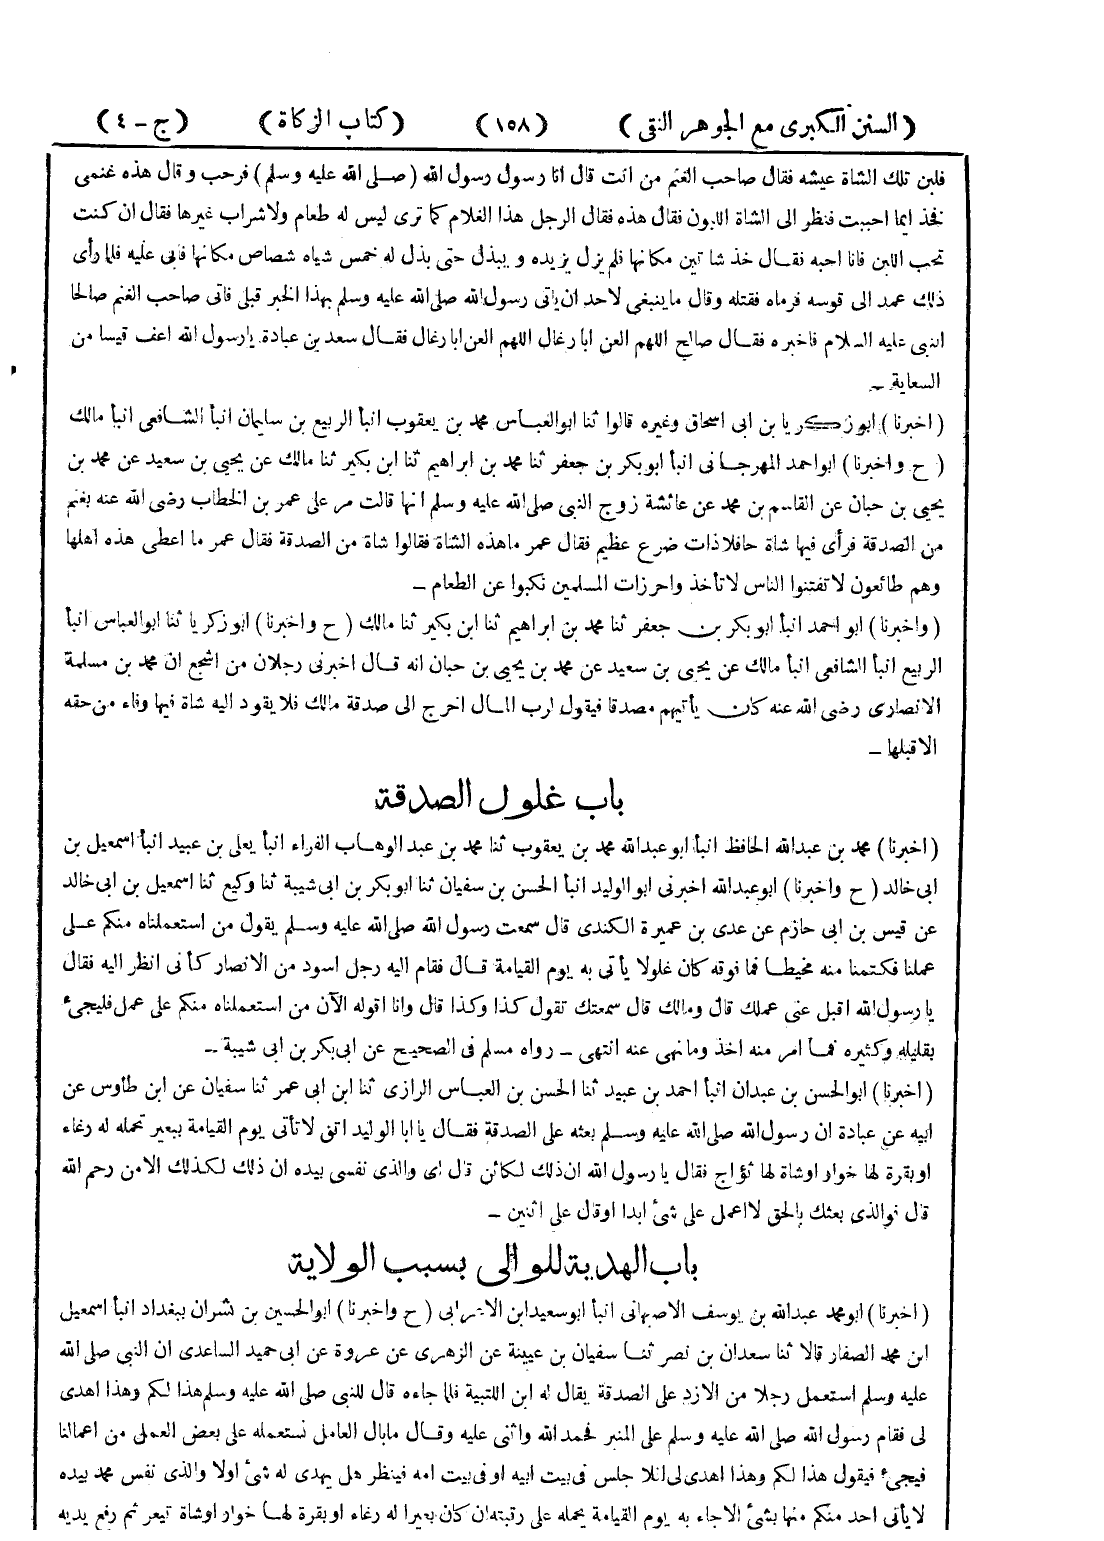 (السنن الكبرى مع الجوهر النقى) (١٥٨) (كتاب الزكاة) (ج - ٤)
فلبن تلك الشاة عيشه فقال صاحب الغنم من انت قال انا رسول رسول الله (صلى الله عليه وسلم) فرحب وقال هذه غنمى
فخذ ايما احببت فنظر الى الشاة اللبون فقال هذه فقال الرجل هذا الغلام كما ترى ليس له طعام ولاشراب غيرها فقال ان كنت
تحب اللبن فانا احبه فقال خذ شاتين مكانها فلم يزل يزيده ويبذل حتى بذل له خمس شياه شصاص مكانها فابى عليه فلما رأى
ذلك عمد الى قوسه فرماه فقتله وقال ماينبغى لاحد ان ياتى رسول الله صلى الله عليه وسلم بهذا الخبر قبلى فاتى صاحب الغنم صالحا
النبى عليه السلام فاخبره فقال صالح اللهم العن ابا رغال اللهم العن ابا رغال فقال سعد بن عبادة يا رسول الله اعف قيسا من
السعاية ـ
(اخبرنا) ابو زكريا بن ابى اسحاق وغيره قالوا ثنا ابو العباس محمد بن يعقوب انبأ الربيع بن سليمان انبأ الشافعى انبأ مالك
(ح واخبرنا) ابو احمد المهرجانى انبأ ابو بكر بن جعفر ثنا محمد بن ابراهيم ثنا ابن بكير ثنا مالك عن يحيى بن سعيد عن محمد بن
يحيى بن حبان عن القاسم بن محمد عن عائشة زوج النبى صلى الله عليه وسلم انها قالت مر على عمر بن الخطاب رضى الله عنه بغنم
من الصدقة فرأى فيها شاة حافلا ذات ضرع عظيم فقال عمر ماهذه الشاة فقالوا شاة من الصدقة فقال عمر ما اعطى هذه اهلها
وهم طائعون لاتفتنوا الناس لاتأخذ واحرزات المسلمين نكبوا عن الطعام ـ
(واخبرنا) ابو احمد انبأ ابو بكر بن جعفر ثنا محمد بن ابراهيم ثنا ابن بكير ثنا مالك (ح واخبرنا) ابو زكريا ثنا ابو العباس انبأ
الربيع انبأ الشافعى انبأ مالك عن يحيى بن سعيد عن محمد بن يحيى بن حبان انه قال اخبرنى رجلان من اشجع ان محمد بن مسلمة
الانصارى رضى الله عنه كان يأتيهم مصدقا فيقول لرب المال اخرج الى صدقة مالك فلا يقود اليه شاة فيها وفاء من حقه
الاقبلها ـ
باب غلول الصدقة
(اخبرنا) محمد بن عبدالله الحافظ انبأ ابو عبدالله محمد بن يعقوب ثنا محمد بن عبد الوهاب الفراء انبأ يعلى بن عبيد انبأ اسمعيل بن
ابى خالد (ح واخبرنا) ابو عبدالله اخبرنى ابو الوليد انبأ الحسن بن سفيان ثنا ابو بكر بن ابى شيبة ثنا وكيع ثنا اسمعيل بن ابى خالد
عن قيس بن ابى حازم عن عدى بن عميرة الكندى قال سمعت رسول الله صلى الله عليه وسلم يقول من استعملناه منكم على
عملنا فكتمنا منه مخيطا فما فوقه كان غلولا يأتى به يوم القيامة قال فقام اليه رجل اسود من الانصار كأنى انظر اليه فقال
يا رسول الله اقبل عنى عملك قال ومالك قال سمعتك تقول كذا وكذا قال وانا اقوله الآن من استعملناه منكم على عمل فليجئ
بقليله وكثيره فما امر منه اخذ ومانهى عنه انتهى ـ رواه مسلم فى الصحيح عن ابى بكر بن ابى شيبة ـ
(اخبرنا) ابو الحسن بن عبدان انبأ احمد بن عبيد ثنا الحسن بن العباس الرازى ثنا ابن ابى عمر ثنا سفيان عن ابن طأوس عن
ابيه عن عبادة ان رسول الله صلى الله عليه وسلم بعثه على الصدقة فقال يا ابا الوليد اتق لاتأتى يوم القيامة ببعير تحمله له رغاء
او بقرة لها خوار اوشاة لها ثؤاج فقال يا رسول الله ان ذلك لكائن قال اى والذى نفسى بيده ان ذلك لكذلك الامن رحم الله
قال فوالذى بعثك بالحق لااعمل على شئ ابدا اوقال على اثنين ـ
باب الهدية للوالى بسبب الولاية
(اخبرنا) ابو محمد عبدالله بن يوسف الاصبهانى انبأ ابو سعيد ابن الاعرابى (ح واخبرنا) ابو الحسين بن بشران ببغداد انبأ اسمعيل
ابن محمد الصفار قالا ثنا سعدان بن نصر ثنا سفيان بن عيينة عن الزهرى عن عروة عن ابى حميد الساعدى ان النبى صلى الله
عليه وسلم استعمل رجلا من الازد على الصدقة يقال له ابن اللتبية فلما جاءه قال للنبى صلى الله عليه وسلم هذا لكم وهذا اهدى
لى فقام رسول الله صلى الله عليه وسلم على المنبر فحمد الله واثنى عليه وقال مابال العامل نستعمله على بعض العمل من اعمالنا
فيجئ فيقول هذا لكم وهذا اهدى لى افلا جلس فى بيت ابيه او فى بيت امه فينظر هل يهدى له شئ اولا والذى نفس محمد بيده
لايأتى احد منكم منها بشئ الاجاء به يوم القيامة يحمله على رقبته ان كان بعيرا له رغاء او بقرة لها خوار اوشاة تيعر ثم رفع يديه